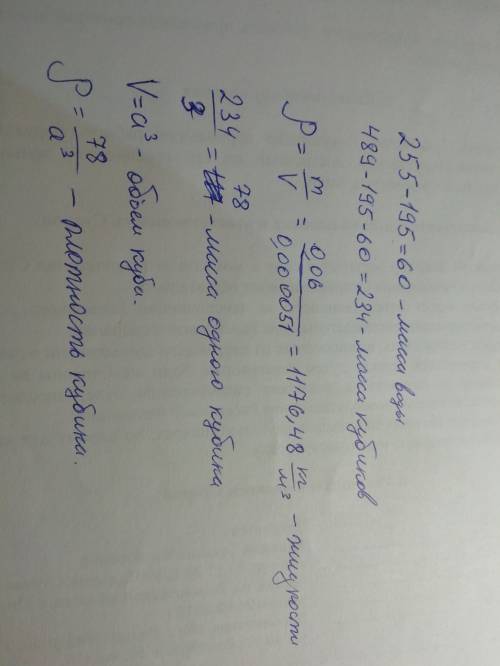 255-195=60 - масса воды
489-195-60=234 - масса кубиков
ρ = m/V = 0,06/0,000051 = 1176,48 кг/м3 - жидкости
234/3 = 78 - масса одного кубика
V=a³ - объем куби.
ρ = 78/a³ - плотность кубика.